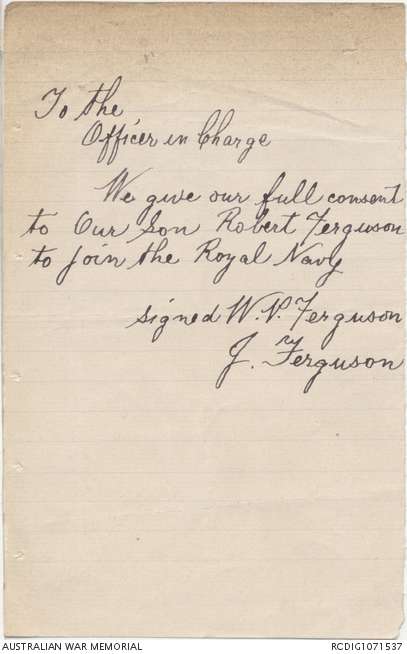 To the
Officer in Charge
We give our full consent
to Our Son Robert Ferguson
to join the Royal Navy
signed W. P. Ferguson
J. Ferguson
AUSTRALIAN WAR MEMORIAL
RCDIG1071537